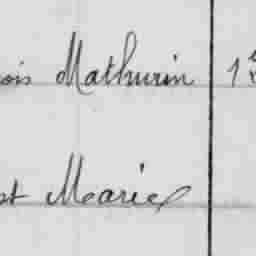 ois Mathurin 1
st Marie